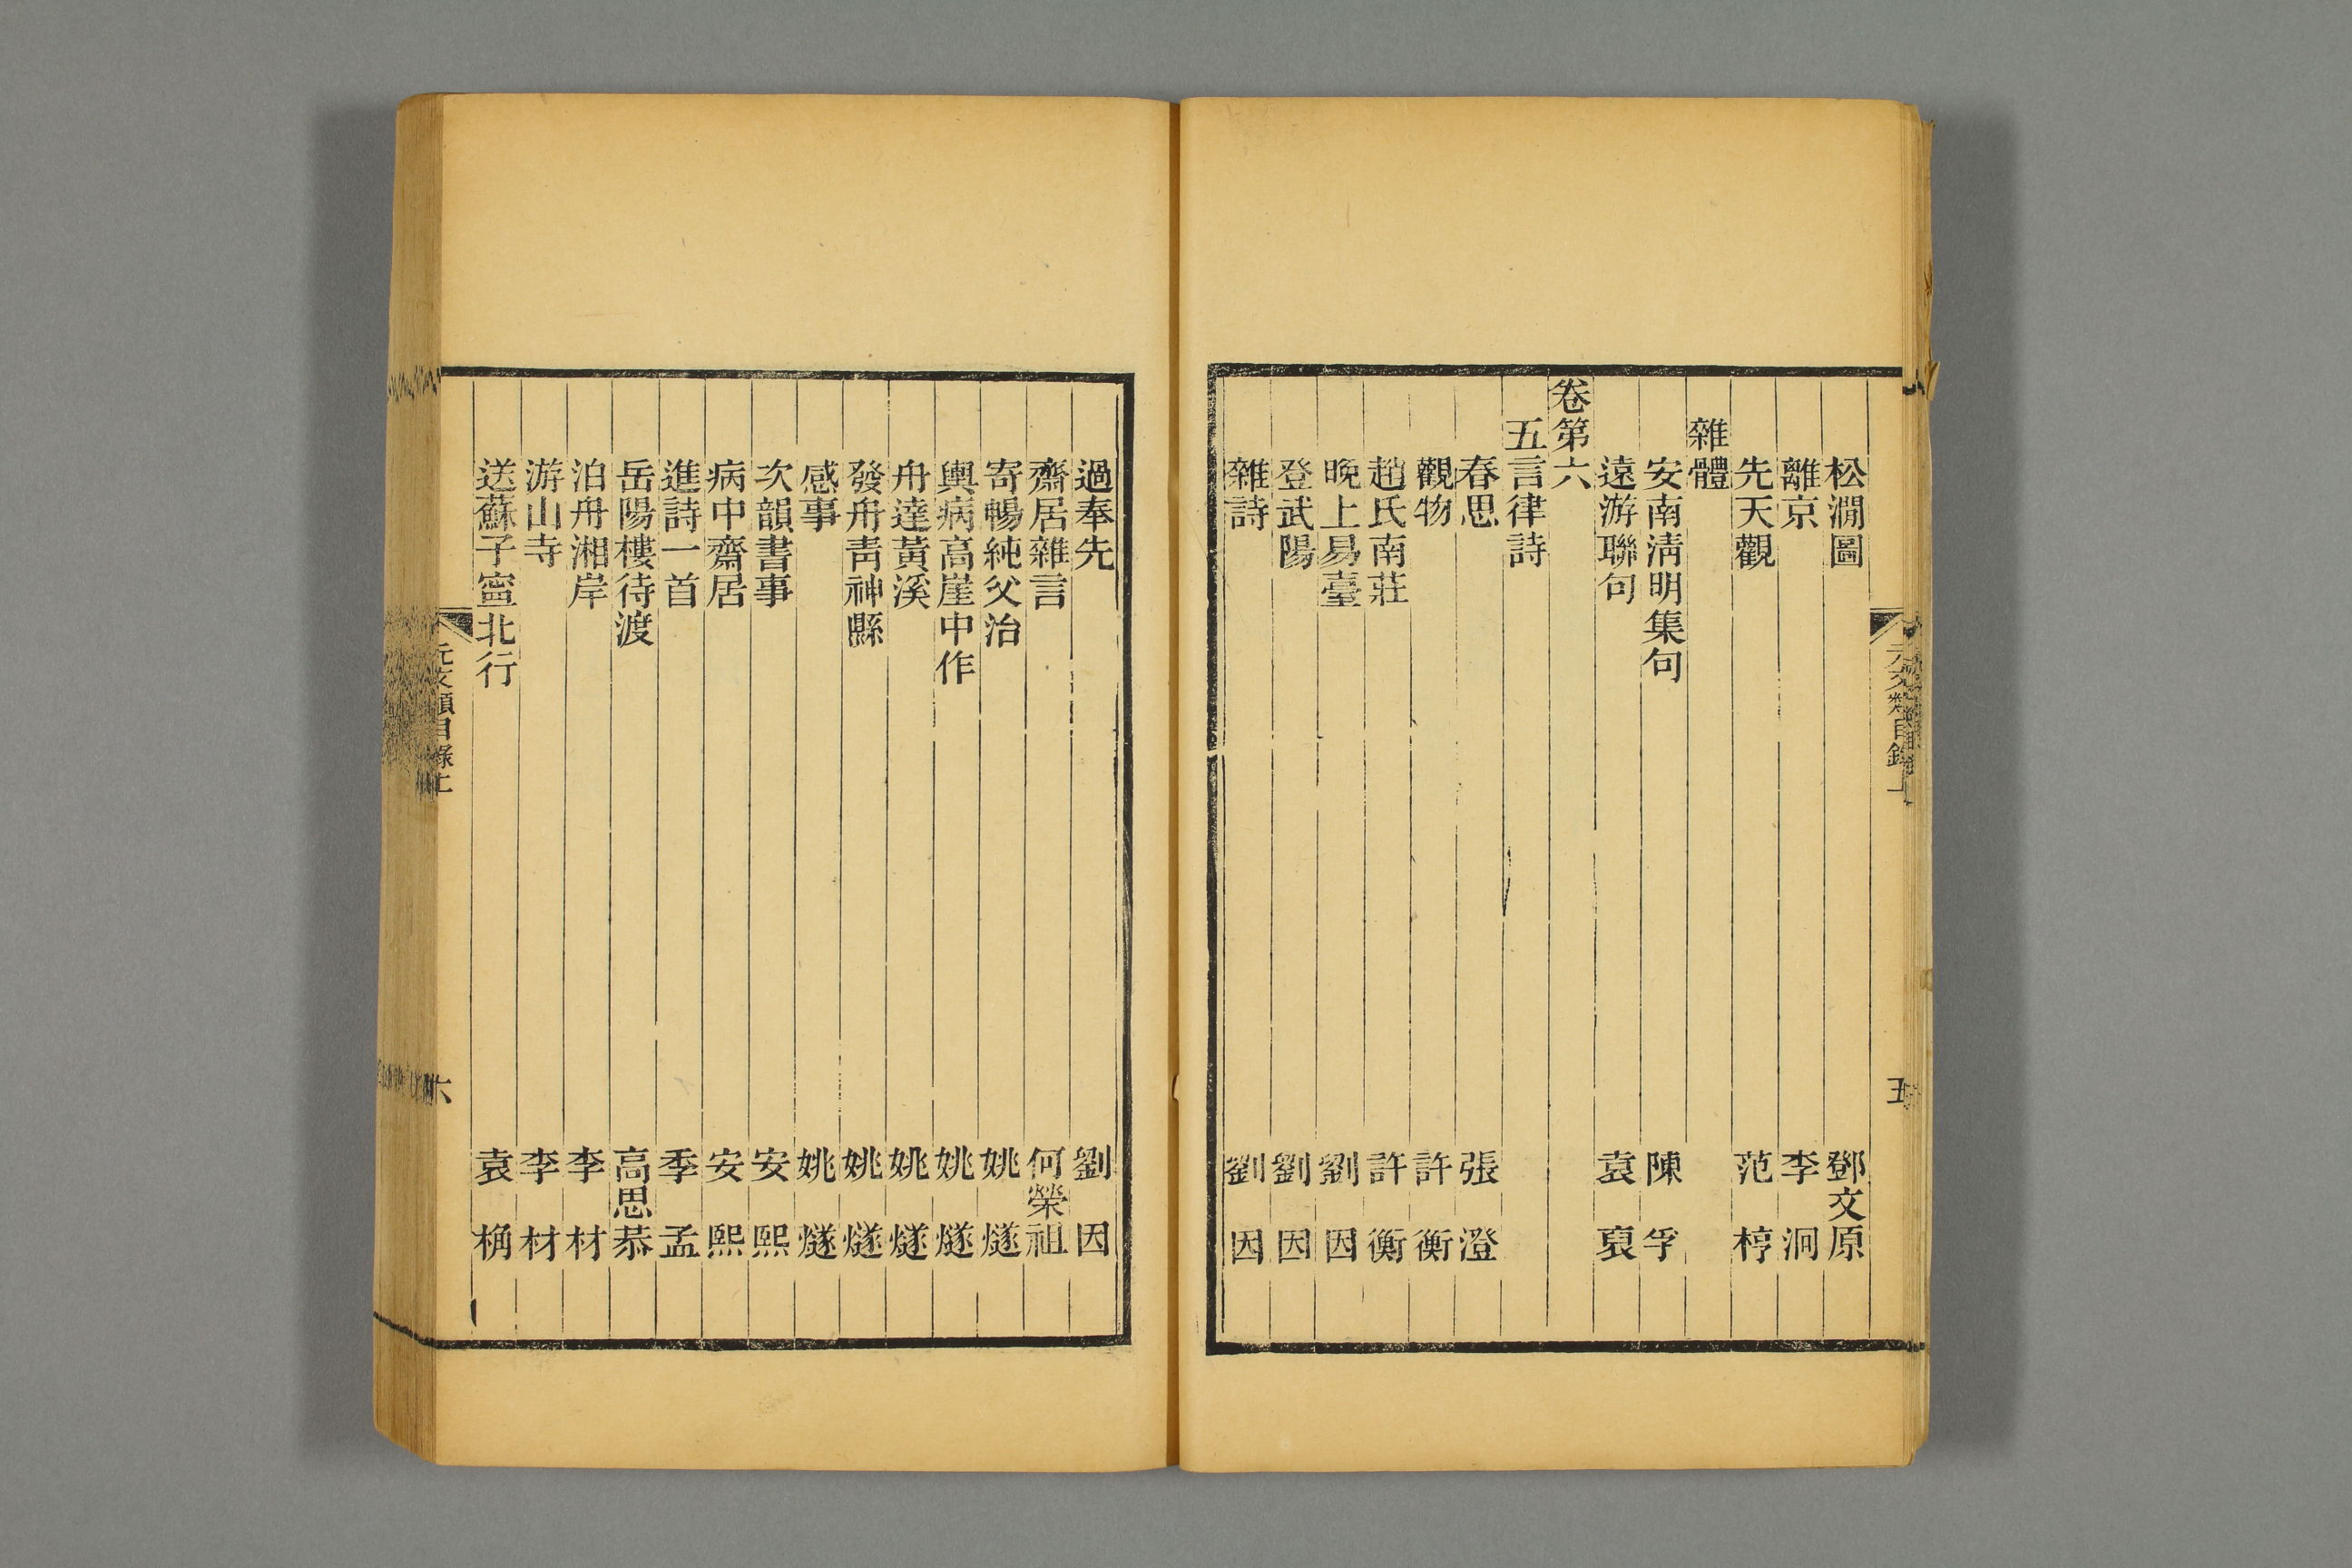 松澗圖 鄧文原
離京 李洞
先天觀 范梈
雜體
安南清明集句 陳孚
遠游聯句 袁裒
卷第六
五言律詩
春思 張澄
觀物 許衡
趙氏南莊 許衡
晚上易臺 劉因
登武陽 劉因
雜詩 劉因
過奉先 劉因
齋居雜言 何榮祖
寄暢純父治 姚燧
輿病高崖中作 姚燧
舟達黃溪 姚燧
發舟靑神縣 姚燧
感事 姚燧
次韻書事 安熙
病中齋居 安熙
進詩一首 季孟
岳陽樓待渡 高思恭
泊舟湘岸 李材
游山寺 李材
送蘇子寧北行 袁桷
元文類目錄上
五
元文類目錄上
六